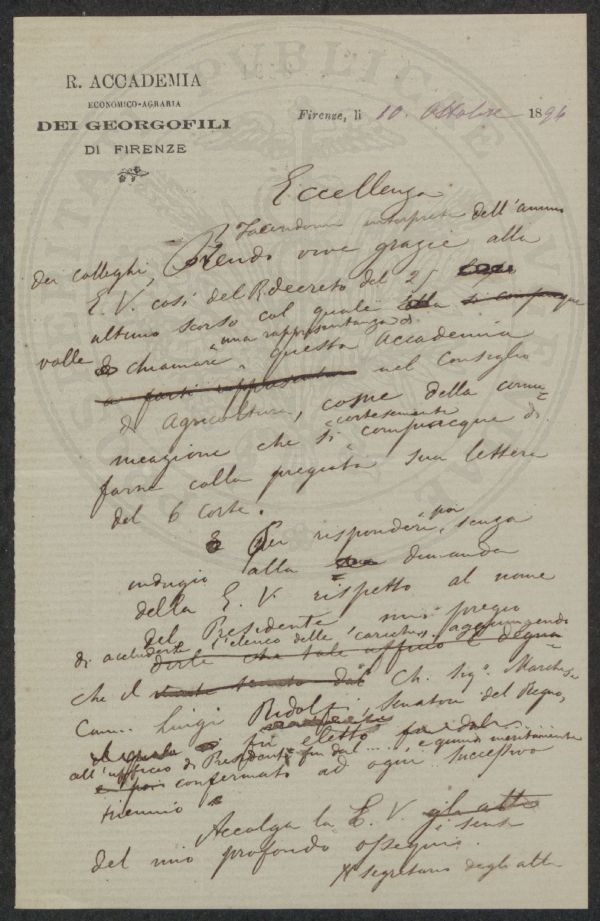 R. ACCADEMIA
ECONOMICO-AGRARIA
DEI GEORGOFILI
DI FIRENZE
Firenze, lì 10. Ottobre 1896
Eccellenza
Facendomi interprete dell'animo
dei colleghi, Rendo vive grazie alla
E. V. così del R. decreto del 25
ultimo scorso col quale si compiacque
volle chiamare una rappresentanza di questa Accademia
a farsi rappresentare nel Consiglio
di Agricoltura, come della comu=
nicazione che si cortesemente compiacque di
farne colla pregiata sua lettera
del 6 corte.
Per rispondere poi, senza
indugio alla domanda
della E. V. rispetto al nome
del Presidente mi pregio
di accluderle l'elenco delle "cariche" aggiungendo
dirle che tale ufficio è
che il Ch. Sigr. Marchese
Comm. Luigi Ridolfi, Senatore del Regno,
il quale fu eletto fin dal
all'ufficio di Presidente fin dal ... e quindi meritamente
e poi confermato ad ogni successivo
triennio
Accolga la E. V. gli atti i sensi
del mio profondo ossequio.
Il segretario degli atti